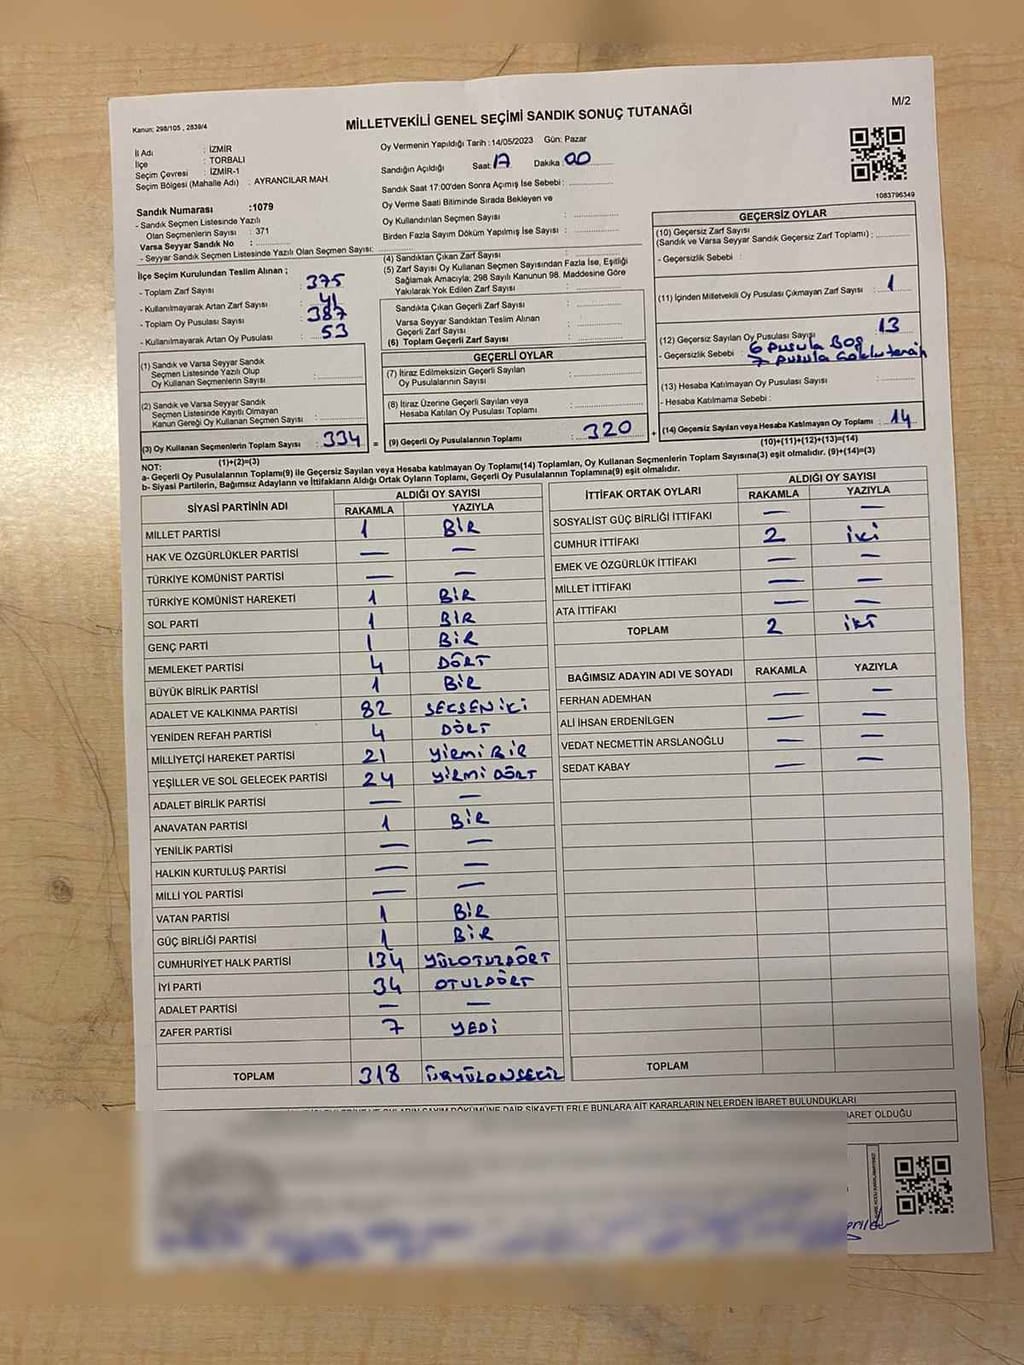 Kanun: 298/105 , 2839/4
MİLLETVEKİLİ GENEL SEÇİMİ SANDIK SONUÇ TUTANAĞI
M/2
İl Adı : İZMİR
İlçe : TORBALI
Seçim Çevresi : İZMİR-1
Seçim Bölgesi (Mahalle Adı) : AYRANCILAR MAH.
Oy Vermenin Yapıldığı Tarih :14/05/2023 Gün: Pazar
Sandığın Açıldığı Saat: 17 Dakika 00
Sandık Saat 17:00'den Sonra Açımış İse Sebebi :
Oy Verme Saati Bitiminde Sırada Bekleyen ve
Oy Kullandırılan Seçmen Sayısı :
Birden Fazla Sayım Döküm Yapılmış İse Sayısı :
1083796349
Sandık Numarası :1079
- Sandık Seçmen Listesinde Yazılı
Olan Seçmenlerin Sayısı : 371
Varsa Seyyar Sandık No :
- Seyyar Sandık Seçmen Listesinde Yazılı Olan Seçmen Sayısı:
İlçe Seçim Kurulundan Teslim Alınan ;
- Toplam Zarf Sayısı : 375
- Kullanılmayarak Artan Zarf Sayısı : 41
- Toplam Oy Pusulası Sayısı : 387
- Kullanılmayarak Artan Oy Pusulası : 53
(1) Sandık ve Varsa Seyyar Sandık
Seçmen Listesinde Yazılı Olup
Oy Kullanan Seçmenlerin Sayısı :
(2) Sandık ve Varsa Seyyar Sandık
Seçmen Listesinde Kayıtlı Olmayan
Kanun Gereği Oy Kullanan Seçmen Sayısı :
(3) Oy Kullanan Seçmenlerin Toplam Sayısı : 334 =
(1)+(2)=(3)
(4) Sandıktan Çıkan Zarf Sayısı :
(5) Zarf Sayısı Oy Kullanan Seçmen Sayısından Fazla İse, Eşitliği
Sağlamak Amacıyla; 298 Sayılı Kanunun 98. Maddesine Göre
Yakılarak Yok Edilen Zarf Sayısı :
Sandıkta Çıkan Geçerli Zarf Sayısı :
Varsa Seyyar Sandıktan Teslim Alınan
Geçerli Zarf Sayısı :
(6) Toplam Geçerli Zarf Sayısı :
GEÇERLİ OYLAR
(7) İtiraz Edilmeksizin Geçerli Sayılan
Oy Pusulalarının Sayısı :
(8) İtiraz Üzerine Geçerli Sayılan veya
Hesaba Katılan Oy Pusulası Toplamı :
(9) Geçerli Oy Pusulalarının Toplamı : 320 +
GEÇERSİZ OYLAR
(10) Geçersiz Zarf Sayısı
(Sandık ve Varsa Seyyar Sandık Geçersiz Zarf Toplamı) :
- Geçersizlik Sebebi :
(11) İçinden Milletvekili Oy Pusulası Çıkmayan Zarf Sayısı : 1
(12) Geçersiz Sayılan Oy Pusulası Sayısı 13
- Geçersizlik Sebebi : 6 pusula Boş
7 pusula
(13) Hesaba Katılmayan Oy Pusulası Sayısı :
- Hesaba Katılmama Sebebi :
(14) Geçersiz Sayılan veya Hesaba Katılmayan Oy Toplamı : 14
(10)+(11)+(12)+(13)=(14)
NOT:
a- Geçerli Oy Pusulalarının Toplamı(9) ile Geçersiz Sayılan veya Hesaba katılmayan Oy Toplamı(14) Toplamları, Oy Kullanan Seçmenlerin Toplam Sayısına(3) eşit olmalıdır. (9)+(14)=(3)
b- Siyasi Partilerin, Bağımsız Adayların ve İttifakların Aldığı Ortak Oyların Toplamı, Geçerli Oy Pusulalarının Toplamına(9) eşit olmalıdır.
SİYASİ PARTİNİN ADI ALDIĞI OY SAYISI
RAKAMLA YAZIYLA
MİLLET PARTİSİ 1 BİR
HAK VE ÖZGÜRLÜKLER PARTİSİ — —
TÜRKİYE KOMÜNİST PARTİSİ — —
TÜRKİYE KOMÜNİST HAREKETİ 1 BİR
SOL PARTİ 1 BİR
GENÇ PARTİ 1 BİR
MEMLEKET PARTİSİ 4 DÖRT
BÜYÜK BİRLİK PARTİSİ 1 BİR
ADALET VE KALKINMA PARTİSİ 82 SEKSEN İKİ
YENİDEN REFAH PARTİSİ 4 DÖRT
MİLLİYETÇİ HAREKET PARTİSİ 21 YİRMİ BİR
YEŞİLLER VE SOL GELECEK PARTİSİ 24 YİRMİ DÖRT
ADALET BİRLİK PARTİSİ — —
ANAVATAN PARTİSİ 1 BİR
YENİLİK PARTİSİ — —
HALKIN KURTULUŞ PARTİSİ — —
MİLLİ YOL PARTİSİ — —
VATAN PARTİSİ 1 BİR
GÜÇ BİRLİĞİ PARTİSİ 1 BİR
CUMHURİYET HALK PARTİSİ 134 YÜZOTUZDÖRT
İYİ PARTİ 34 OTUZDÖRT
ADALET PARTİSİ — —
ZAFER PARTİSİ 7 YEDİ
TOPLAM 318 ÜÇYÜZONSEKİZ
İTTİFAK ORTAK OYLARI ALDIĞI OY SAYISI
RAKAMLA YAZIYLA
SOSYALİST GÜÇ BİRLİĞİ İTTİFAKI — —
CUMHUR İTTİFAKI 2 İKİ
EMEK VE ÖZGÜRLÜK İTTİFAKI — —
MİLLET İTTİFAKI — —
ATA İTTİFAKI — —
TOPLAM 2 İKİ
BAĞIMSIZ ADAYIN ADI VE SOYADI RAKAMLA YAZIYLA
FERHAN ADEMHAN — —
ALİ İHSAN ERDENİLGEN — —
VEDAT NECMETTİN ARSLANOĞLU — —
SEDAT KABAY — —
TOPLAM
SAYIM DÖKÜMÜNE DAİR ŞİKAYETLERLE BUNLARA AİT KARARLARIN NELERDEN İBARET BULUNDUKLARI
İBARET OLDUĞU